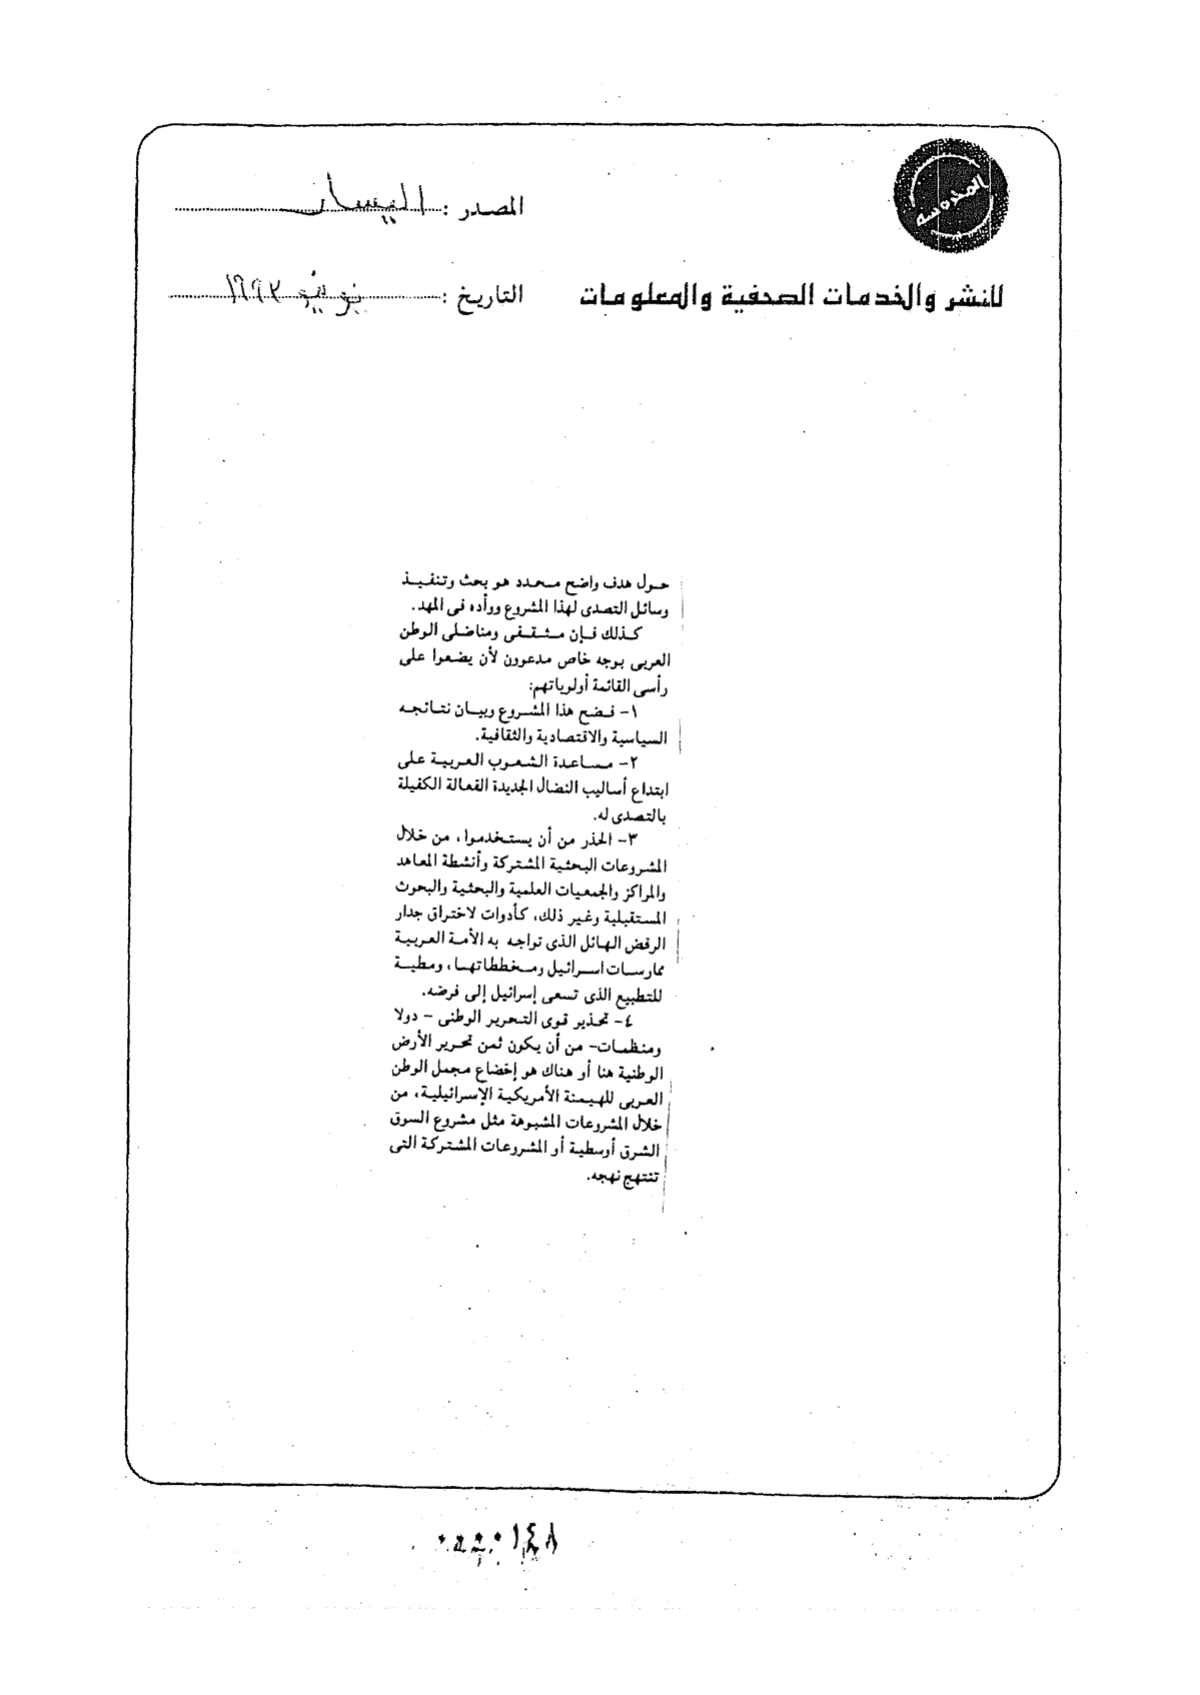 المصدر : اليسار
للنشر والخدمات الصحفية والمعلومات
التاريخ : يونيو ١٩٩٢
حول هدف واضح محدد هو بحث وتنفيذ
وسائل التصدى لهذا المشروع ووأده فى المهد.
كذلك فإن مثقفى ومناضلى الوطن
العربى بوجه خاص مدعوون لأن يضعوا على
رأسى القائمة أولوياتهم:
١- فضح هذا المشروع وبيان نتائجه
السياسية والاقتصادية والثقافية.
٢- مساعدة الشعوب العربية على
ابتداع أساليب النضال الجديدة الفعالة الكفيلة
بالتصدى له.
٣- الحذر من أن يستخدموا، من خلال
المشروعات البحثية المشتركة وأنشطة المعاهد
والمراكز والجمعيات العلمية والبحثية والبحوث
المستقبلية وغير ذلك، كأدوات لاختراق جدار
الرفض الهائل الذى تواجه به الأمة العربية
ممارسات اسرائيل ومخططاتها، ومطية
للتطبيع الذى تسعى إسرائيل إلى فرضه.
٤- تحذير قوى التحرير الوطنى - دولا
ومنظمات- من أن يكون ثمن تحرير الأرض
الوطنية هنا أو هناك هو إخضاع مجمل الوطن
العربى للهيمنة الأمريكية الإسرائيلية، من
خلال المشروعات المشبوهة مثل مشروع السوق
الشرق أوسطية أو المشروعات المشتركة التى
تنتهج نهجه.